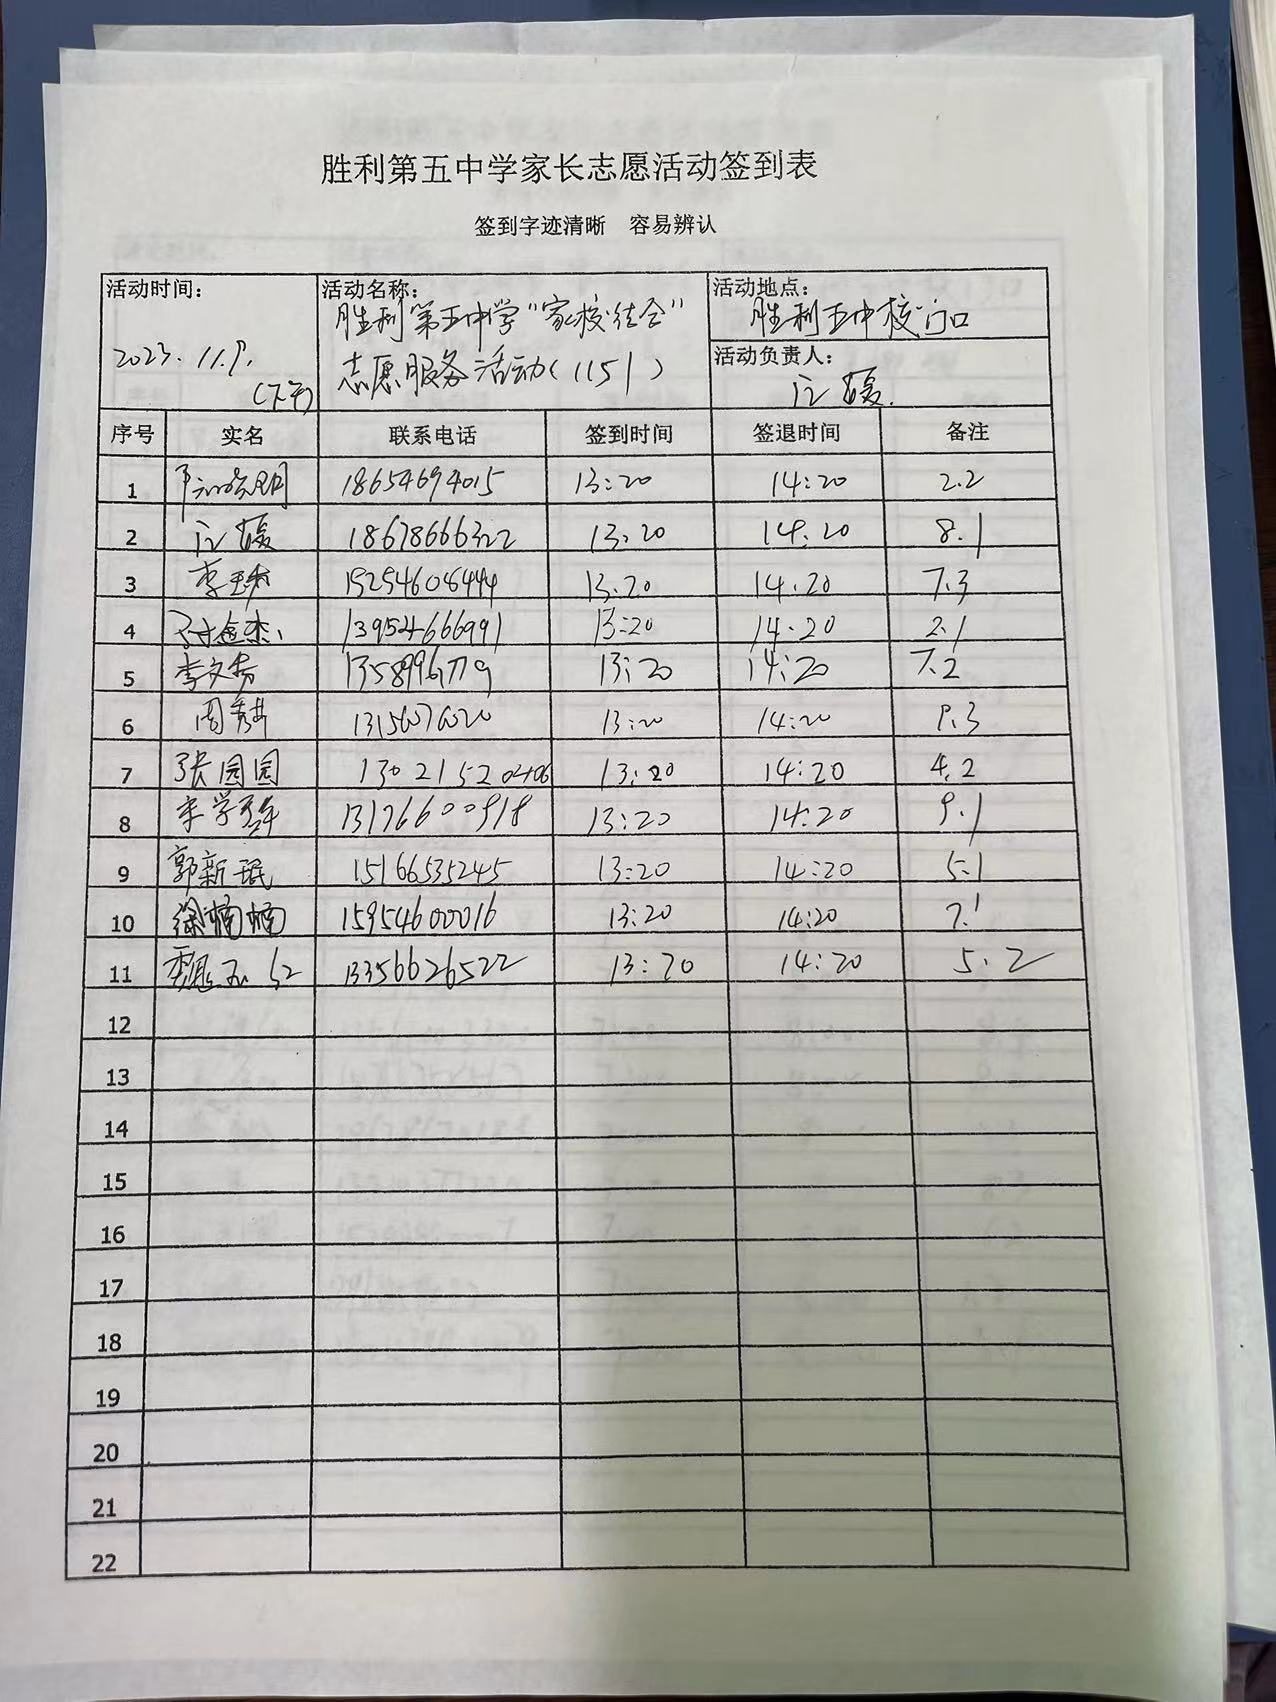 胜利第五中学家长志愿活动签到表
签到字迹清晰 容易辨认
活动时间： 活动名称： 活动地点：
胜利第五中学“家校结合” 胜利五中校门口
2023.11.9. 志愿服务活动（1151） 活动负责人：
（下午） 媛
序号 实名 联系电话 签到时间 签退时间 备注
1 18654694015 13:20 14:20 2.2
2 媛 18678666322 13:20 14:20 8.1
3 李 15254608444 13:20 14:20 7.3
4 孙 杰 13954666991 13:20 14:20 2.1
5 李文芳 13:20 14:20 7.2
6 周秀 13:20 14:20 9.3
7 张园园 13:20 14:20 4.2
8 宋学 13176600918 13:20 14:20 9.1
9 郭新珉 15166535245 13:20 14:20 5.1
10 徐楠楠 15954600016 13:20 14:20 7.1
11 魏玉红 13356626522 13:20 14:20 5.2
12
13
14
15
16
17
18
19
20
21
22